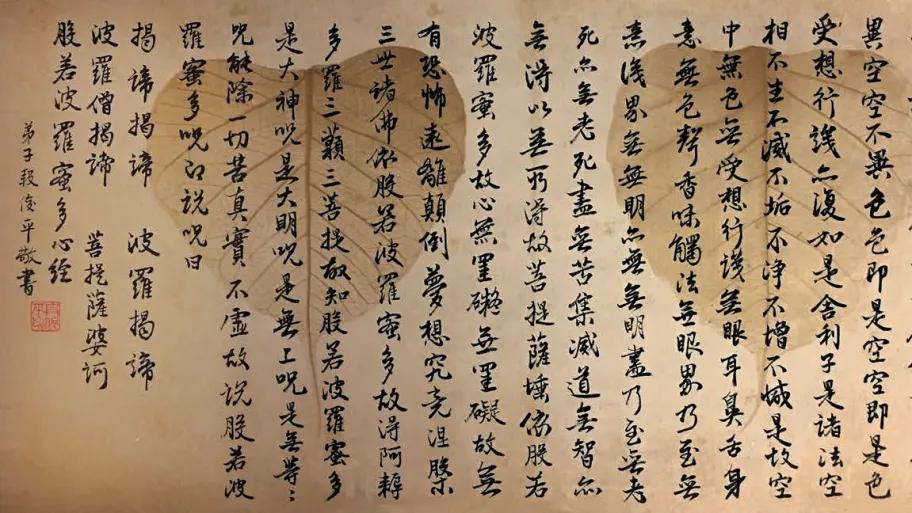 異空空不異色色即是空空即是色
受想行識亦復如是舍利子是諸法空
相不生不滅不垢不淨不增不減是故空
中無色無受想行識無眼耳鼻舌身
意無色聲香味觸法無眼界乃至無
意識界無無明亦無無明盡乃至無老
死亦無老死盡無苦集滅道無智亦
無得以無所得故菩提薩埵依般若
波羅蜜多故心無罣礙無罣礙故無
有恐怖遠離顛倒夢想究竟涅槃
三世諸佛依般若波羅蜜多故得阿耨
多羅三藐三菩提故知般若波羅蜜多
是大神咒是大明咒是無上咒是無等〻
咒能除一切苦真實不虛故說般若波
羅蜜多咒即說咒曰
揭諦揭諦 波羅揭諦
波羅僧揭諦 菩提薩婆訶
般若波羅蜜多心經
弟子段俊平敬書